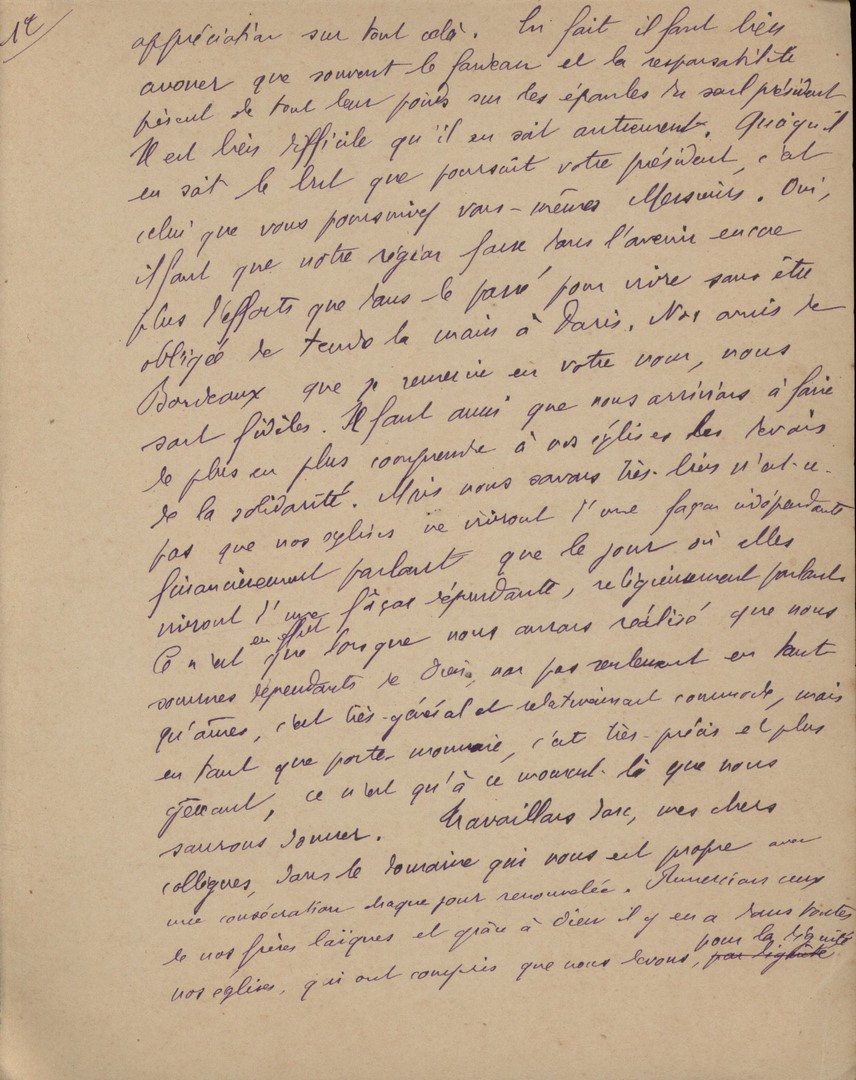 appréciation sur tout cela. En fait il faut bien
avouer que souvent le fardeau et la responsabilité
pèsent de tout leur poids sur les épaules du seul président
Il est bien difficile qu'il en soit autrement. Quoiqu'il
en soit le but que poursuit votre président, c'est
celui que vous poursuivez vous-mêmes Messieurs. Oui,
il faut que notre région fasse dans l'avenir encore
plus d'efforts que dans le passé pour vivre sans être
obligée de tendre la main à Paris. Nos amis de
Bordeaux que je remercie en votre nom, nous
sont fidèles. Il faut aussi que nous arrivions à faire
de plus en plus comprendre à nos églises les devoirs
de la solidarité. Mais nous savons très-bien n'est-ce-
pas que nos églises ne vivront d'une façon indépendante
financièrement parlant que le jour où elles
vivront d'une façon dépendante, religieusement parlant.
Ce n'est en effet que lorsque nous aurons réalisé que nous
sommes dépendants de Dieu, non pas seulement en tant
qu'âmes, c'est très-général et relativement commode, mais
en tant que porte-monnaie, c'est très-précis et plus
gênant, ce n'est qu'à ce moment-là que nous
saurons donner. Travaillons donc, mes chers
collègues, dans le domaine qui nous est propre avec
une consécration chaque jour renouvelée. Remercions ceux
de nos frères laïques et grâce à Dieu il y en a dans toutes
nos églises, qui ont compris que nous devons, par dignité pour la dignité